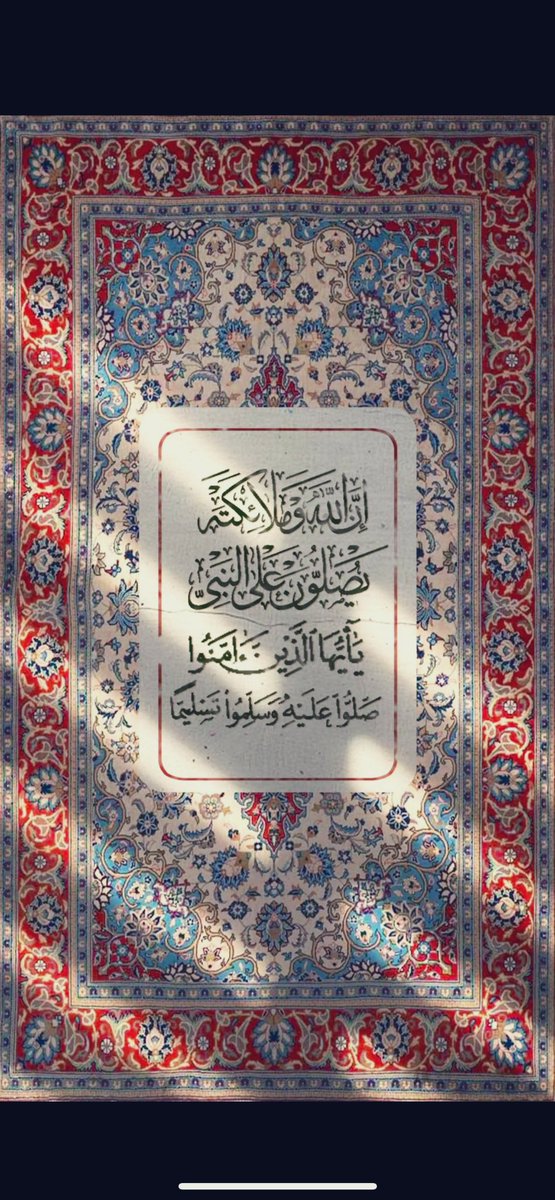 إِنَّ اللَّهَ وَمَلَائِكَتَهُ
يُصَلُّونَ عَلَى النَّبِيِّ
يَا أَيُّهَا ٱلَّذِينَ ءَامَنُوا
صَلُّوا۟ عَلَيْهِ وَسَلِّمُوا۟ تَسْلِيمًا